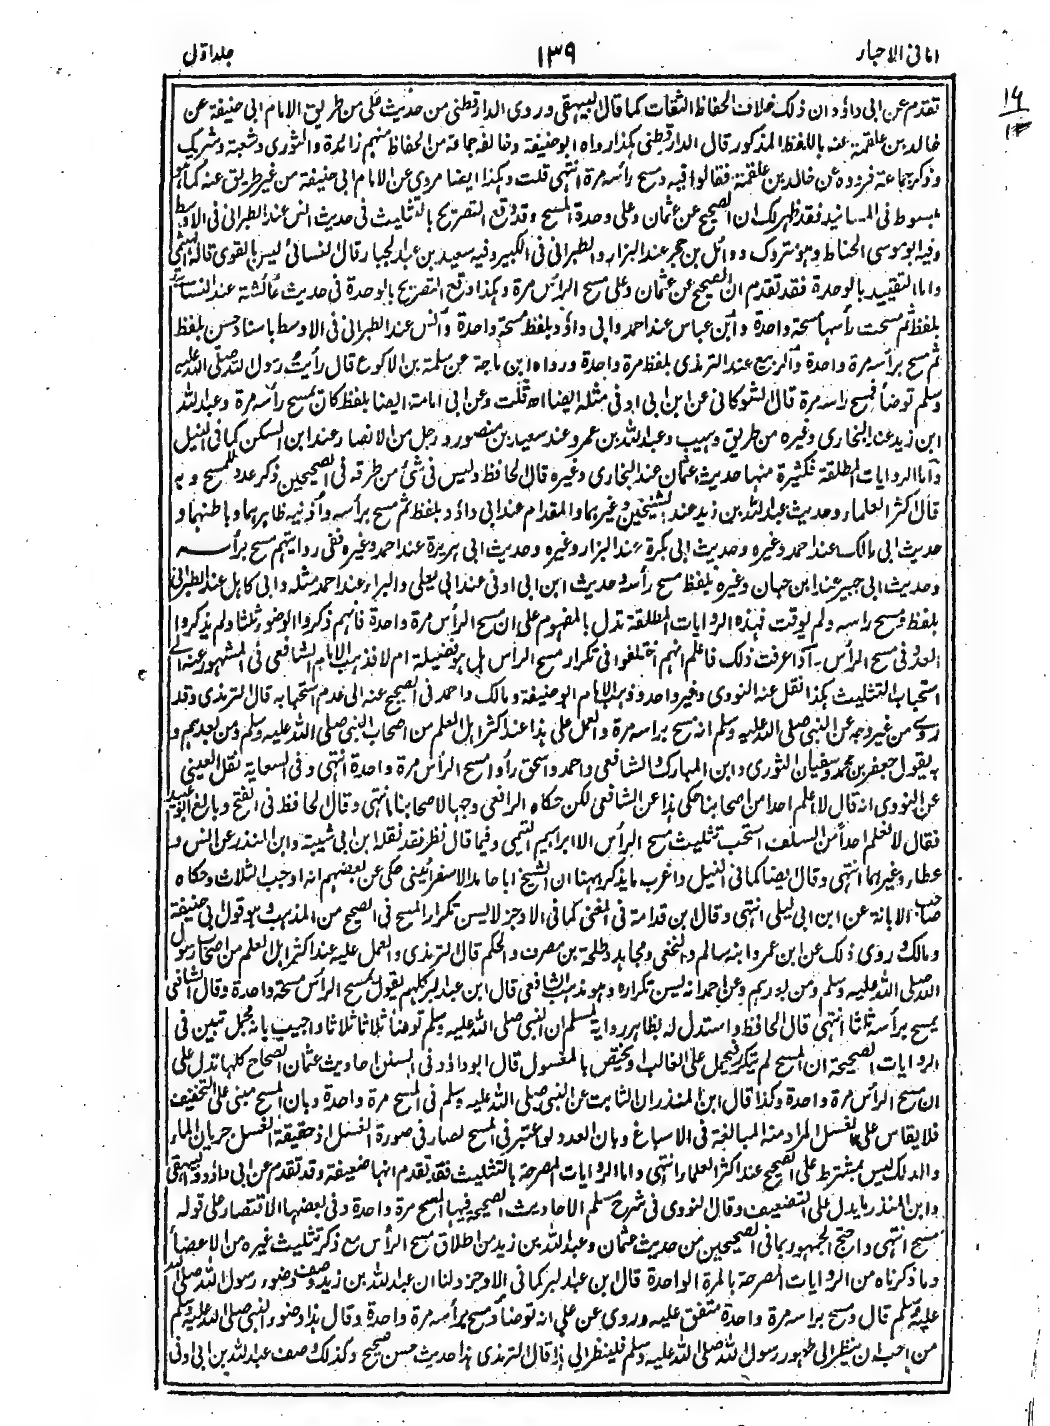 امانی الاحبار ۱۳۹ جلد اوّل
تقدم عن ابی داؤد ان ذلک خلاف الحفاظ الثقات کما قال البیہقی وروی الدارقطنی من حدیث علی من طریق الامام ابی حنیفة عن
خالد بن علقمة عنه باللفظ المذکور قال الدارقطنی ہکذا رواه ابو حنیفة وخالفه جماعة من الحفاظ منہم زائدة والثوری وشعبة وشریک
وذکر جماعة فرووه عن خالد بن علقمة فقالوا فیه ومسح رأسه مرة انتہی قلت وہکذا ایضا مروی عن الامام ابی حنیفة من غیر طریق عنه کما ہو
مبسوط فی المسانید فقد ظہر لک ان الصحیح عن عثمان وعلی وحدة المسح وقد وقع التصریح بالتثلیث فی حدیث انس عند الطبرانی فی الاوسط
وفیه ابو موسی الحناط وہو متروک ووائل بن حجر عند البزار والطبرانی فی الکبیر وفیه سعید بن عبد الجبار قال النسائی لیس بالقوی قاله الہیثمی
واما التقیید بالوحدة فقد تقدم ان الصحیح عن عثمان وعلی مسح الرأس مرة وہکذا وقع التصریح بالوحدة فی حدیث عائشة عند النسائی
بلفظ ثم مسحت رأسہا مسحة واحدة وابن عباس عند احمد وابی داؤد بلفظ مسحة واحدة وانس عند الطبرانی فی الاوسط باسناد حسن بلفظ
ثم مسح برأسه مرة واحدة والربیع عند الترمذی بلفظ مرة واحدة ورواه ابن ماجة عن سلمة بن الاکوع قال رأیت رسول الله صلی الله علیه
وسلم توضأ فمسح رأسه مرة قال الشوکانی عن ابن ابی اوفی مثله ایضا اه قلت وعن ابی امامة ایضا بلفظ کان یمسح رأسه مرة وعبد الله
ابن زید عند البخاری وغیره من طریق وہیب وعبد الله بن عمرو عند سعید بن منصور ورجل من الانصار عند ابن السکن کما فی النیل
واما الروایات المطلقة فکثیرة منہا حدیث عثمان عند البخاری وغیره قال الحافظ ولیس فی شیٔ من طرقه فی الصحیحین ذکر عدد للمسح وبه
قال اکثر العلماء وحدیث عبد الله بن زید عند الشیخین وغیرہما والمقدام عند ابی داؤد بلفظ ثم مسح برأسه وأذنیه ظاہرہما وباطنہما و
حدیث ابی مالک عند احمد وغیره وحدیث ابی بکرة عند البزار وغیره وحدیث ابی ہریرة عند احمد وغیره ففی روایتہم مسح برأسه
وحدیث ابی جبیر عند ابن حبان وغیره بلفظ مسح رأسه وحدیث ابن ابی اوفی عند ابی یعلی والبراء عند احمد مثله وابی کاہل عند الطبرانی
بلفظ ومسح رأسه ولم یوقت فہذه الروایات المطلقة تدل بالمفہوم علی ان مسح الرأس مرة واحدة فانہم ذکروا الوضوء ثلثا ولم یذکروا
العدد فی مسح الرأس۔ اذا عرفت ذلک فاعلم انہم اختلفوا فی تکرار مسح الرأس ہل ہو فضیلة ام لا فذہب الامام الشافعی فی المشہور عنه الی
استحباب التثلیث کذا نقل عنه النووی وغیر واحد وذہب الامام ابو حنیفة ومالک واحمد فی الصحیح عنه الی عدم استحبابه قال الترمذی وقد
روی من غیر وجه عن النبی صلی الله علیه وسلم انه مسح برأسه مرة والعمل علی ہذا عند اکثر اہل العلم من اصحاب النبی صلی الله علیه وسلم ومن بعدہم و
به یقول جعفر بن محمد وسفیان الثوری وابن المبارک والشافعی واحمد واسحق رأوا مسح الرأس مرة واحدة انتہی وفی السعایة نقل العینی
عن النووی انه قال لا اعلم احدا من اصحابنا حکی ہذا عن الشافعی لکن حکاه الرافعی وجہا لاصحابنا انتہی وقال الحافظ فی الفتح وبالغ ابو عبید
فقال لا نعلم احداً من السلف استحب تثلیث مسح الرأس الا ابراہیم التیمی وفیما قال نظر فقد نقله ابن ابی شیبة وابن المنذر عن انس و
عطاء وغیرہما انتہی وقال ایضا کما فی النیل واغرب ما یذکر ہہنا ان الشیخ ابا حامد الاسفرائینی حکی عن بعضہم انه اوجب الثلاث وحکاه
صاحب الابانة عن ابن ابی لیلی انتہی وقال ابن قدامة فی المغنی کما فی الاوجز لا یسن تکرار المسح فی الصحیح من المذہب وہو قول ابی حنیفة
ومالک وروی ذلک عن ابن عمر وابنه سالم والنخعی ومجاہد وطلحة بن مصرف والحکم قال الترمذی والعمل علیه عند اکثر اہل العلم من اصحاب رسول
الله صلی الله علیه وسلم ومن بعدہم وعن احمد انه یسن تکراره وہو مذہب الشافعی قال ابن عبد البر کلہم یقول یمسح الرأس مسحة واحدة وقال الشافعی
یمسح برأسه ثلاثا انتہی قال الحافظ واستدل له بظاہر روایة لمسلم ان النبی صلی الله علیه وسلم توضأ ثلاثا ثلاثا واجیب بانه مجمل تبین فی
الروایات الصحیحة ان المسح لم یتکرر فیحمل علی الغالب او یختص بالمغسول قال ابو داؤد فی السنن احادیث عثمان الصحاح کلہا تدل علی
ان مسح الرأس مرة واحدة وکذا قال ابن المنذر ان الثابت عن النبی صلی الله علیه وسلم فی المسح مرة واحدة وبان المسح مبنی علی التخفیف
فلا یقاس علی الغسل المراد منه المبالغة فی الاسباغ وبان العدد لو اعتبر فی المسح لصار فی صورة الغسل اذ حقیقة الغسل جریان الماء
والدلک لیس بمشترط علی الصحیح عند اکثر العلماء انتہی واما الروایات المصرحة بالتثلیث فقد تقدم انہا ضعیفة وقد تقدم عن ابی داؤد والبیہقی
وابن المنذر ما یدل علی التضعیف وقال النووی فی شرح مسلم الاحادیث الصحیحة فیہا المسح مرة واحدة وفی بعضہا الاقتصار علی قوله
مسح انتہی واحتج الجمہور بما فی الصحیحین من حدیث عثمان وعبد الله بن زید من اطلاق مسح الرأس مع ذکر تثلیث غیره من الاعضاء
وما ذکرناه من الروایات المصرحة بالمرة الواحدة قال ابن عبد البر کما فی الاوجز ولنا ان عبد الله بن زید وصف وضوء رسول الله صلی الله
علیه وسلم قال ومسح برأسه مرة واحدة متفق علیه وروی عن علی انه توضأ ومسح برأسه مرة واحدة وقال ہذا وضوء النبی صلی الله علیه وسلم
من احب ان ینظر الی طہور رسول الله صلی الله علیه وسلم فلینظر الی ہذا قال الترمذی ہذا حدیث حسن صحیح وکذلک وصف عبد الله بن ابی اوفی